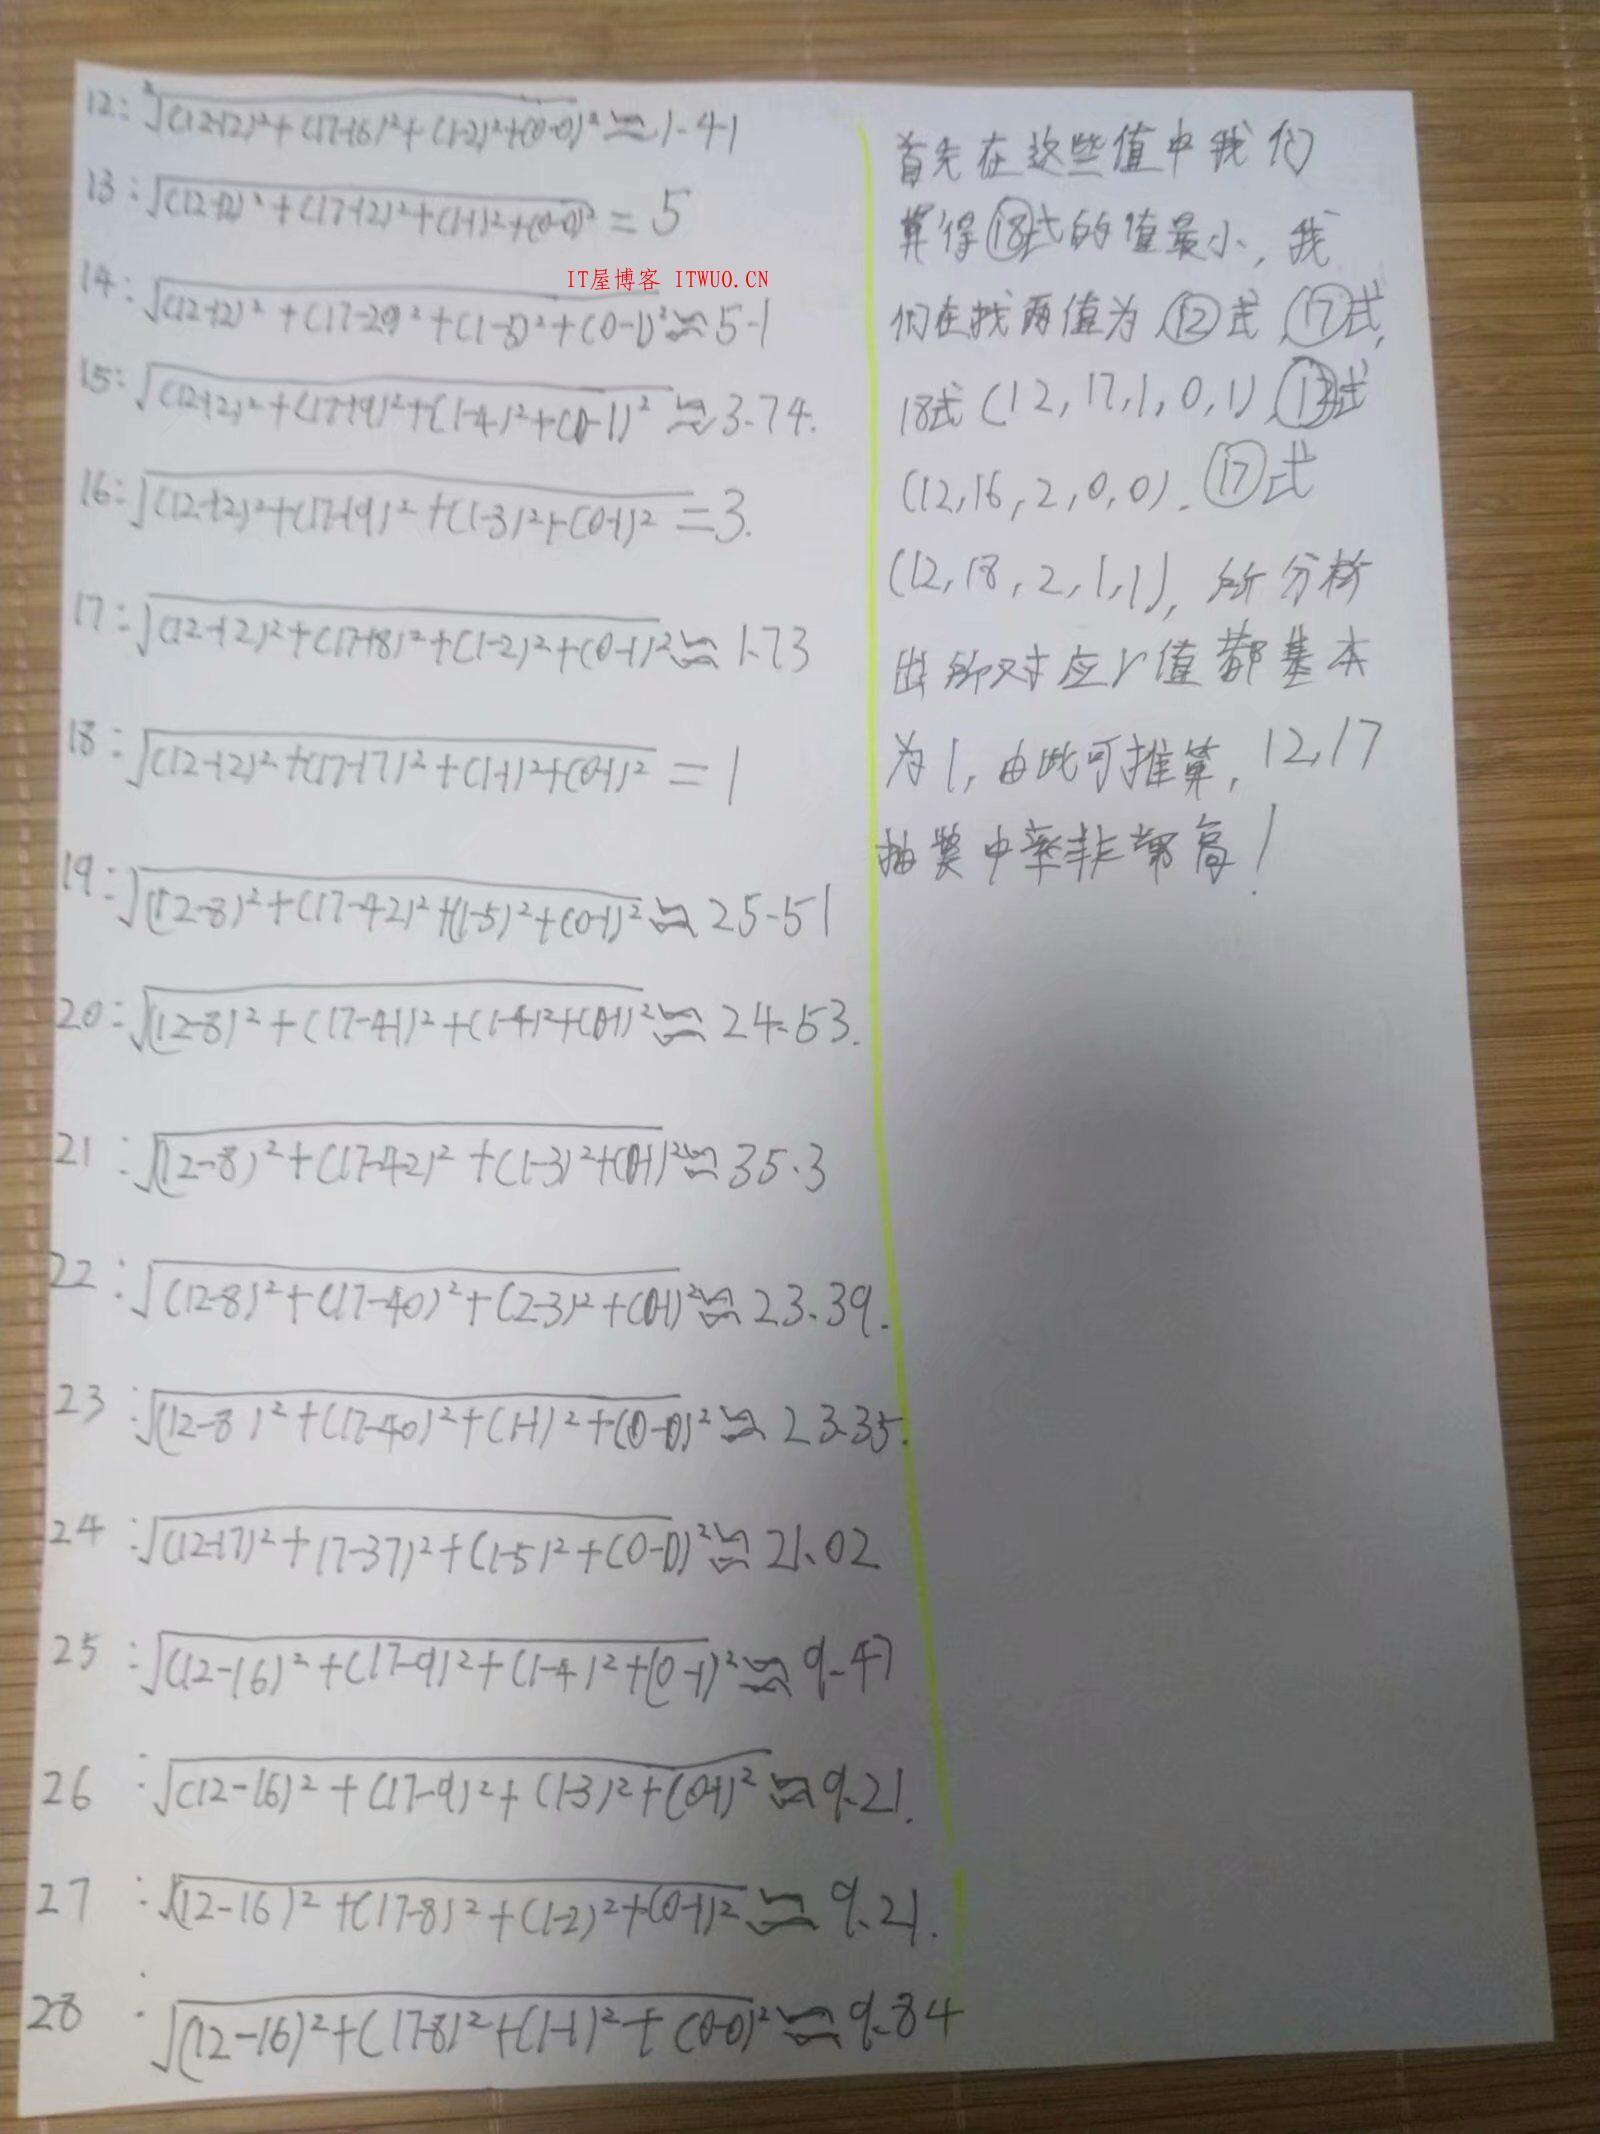 12: ²√(12-12)²+(17-16)²+(1-2)²+(0-0)² ≌ 1.41
13: √(12-12)²+(17-12)²+(1-1)²+(0-0)² = 5
14: √(12-12)²+(17-20)²+(1-5)²+(0-1)² ≌ 5.1
IT屋博客 ITWUO.CN
15: √(12-12)²+(17-19)²+(1-4)²+(0-1)² ≌ 3.74.
16: √(12-12)²+(17-19)²+(1-3)²+(0-1)² = 3.
17: √(12-12)²+(17-18)²+(1-2)²+(0-1)² ≌ 1.73
18: √(12-12)²+(17-17)²+(1-1)²+(0-1)² = 1
19: √(12-8)²+(17-42)²+(1-5)²+(0-1)² ≌ 25.51
20: √(12-8)²+(17-41)²+(1-4)²+(0-1)² ≌ 24.53.
21: √(12-8)²+(17-42)²+(1-3)²+(0-1)² ≌ 35.3
22: √(12-8)²+(17-40)²+(2-3)²+(0-1)² ≌ 23.39.
23: √(12-8)²+(17-40)²+(1-1)²+(0-0)² ≌ 23.35.
24: √(12-17)²+17-37)²+(1-5)²+(0-1)² ≌ 21.02
25: √(12-16)²+(17-9)²+(1-4)²+(0-1)² ≌ 9.47
26: √(12-16)²+(17-9)²+(1-3)²+(0-1)² ≌ 9.21.
27: √(12-16)²+(17-8)²+(1-2)²+(0-1)² ≌ 9.21.
28: √(12-16)²+(17-8)²+(1-1)²+(0-0)² ≌ 9.84
首先在这些值中我们
算得⑱式的值最小，我
们在找两值为⑫式、⑰式，
18式(12,17,1,0,1)、⑫式
(12,16,2,0,0).⑰式
(12,18,2,1,1)，所分析
出所对应y值都基本
为1，由此可推算，12,17
抽奖中率非常高！